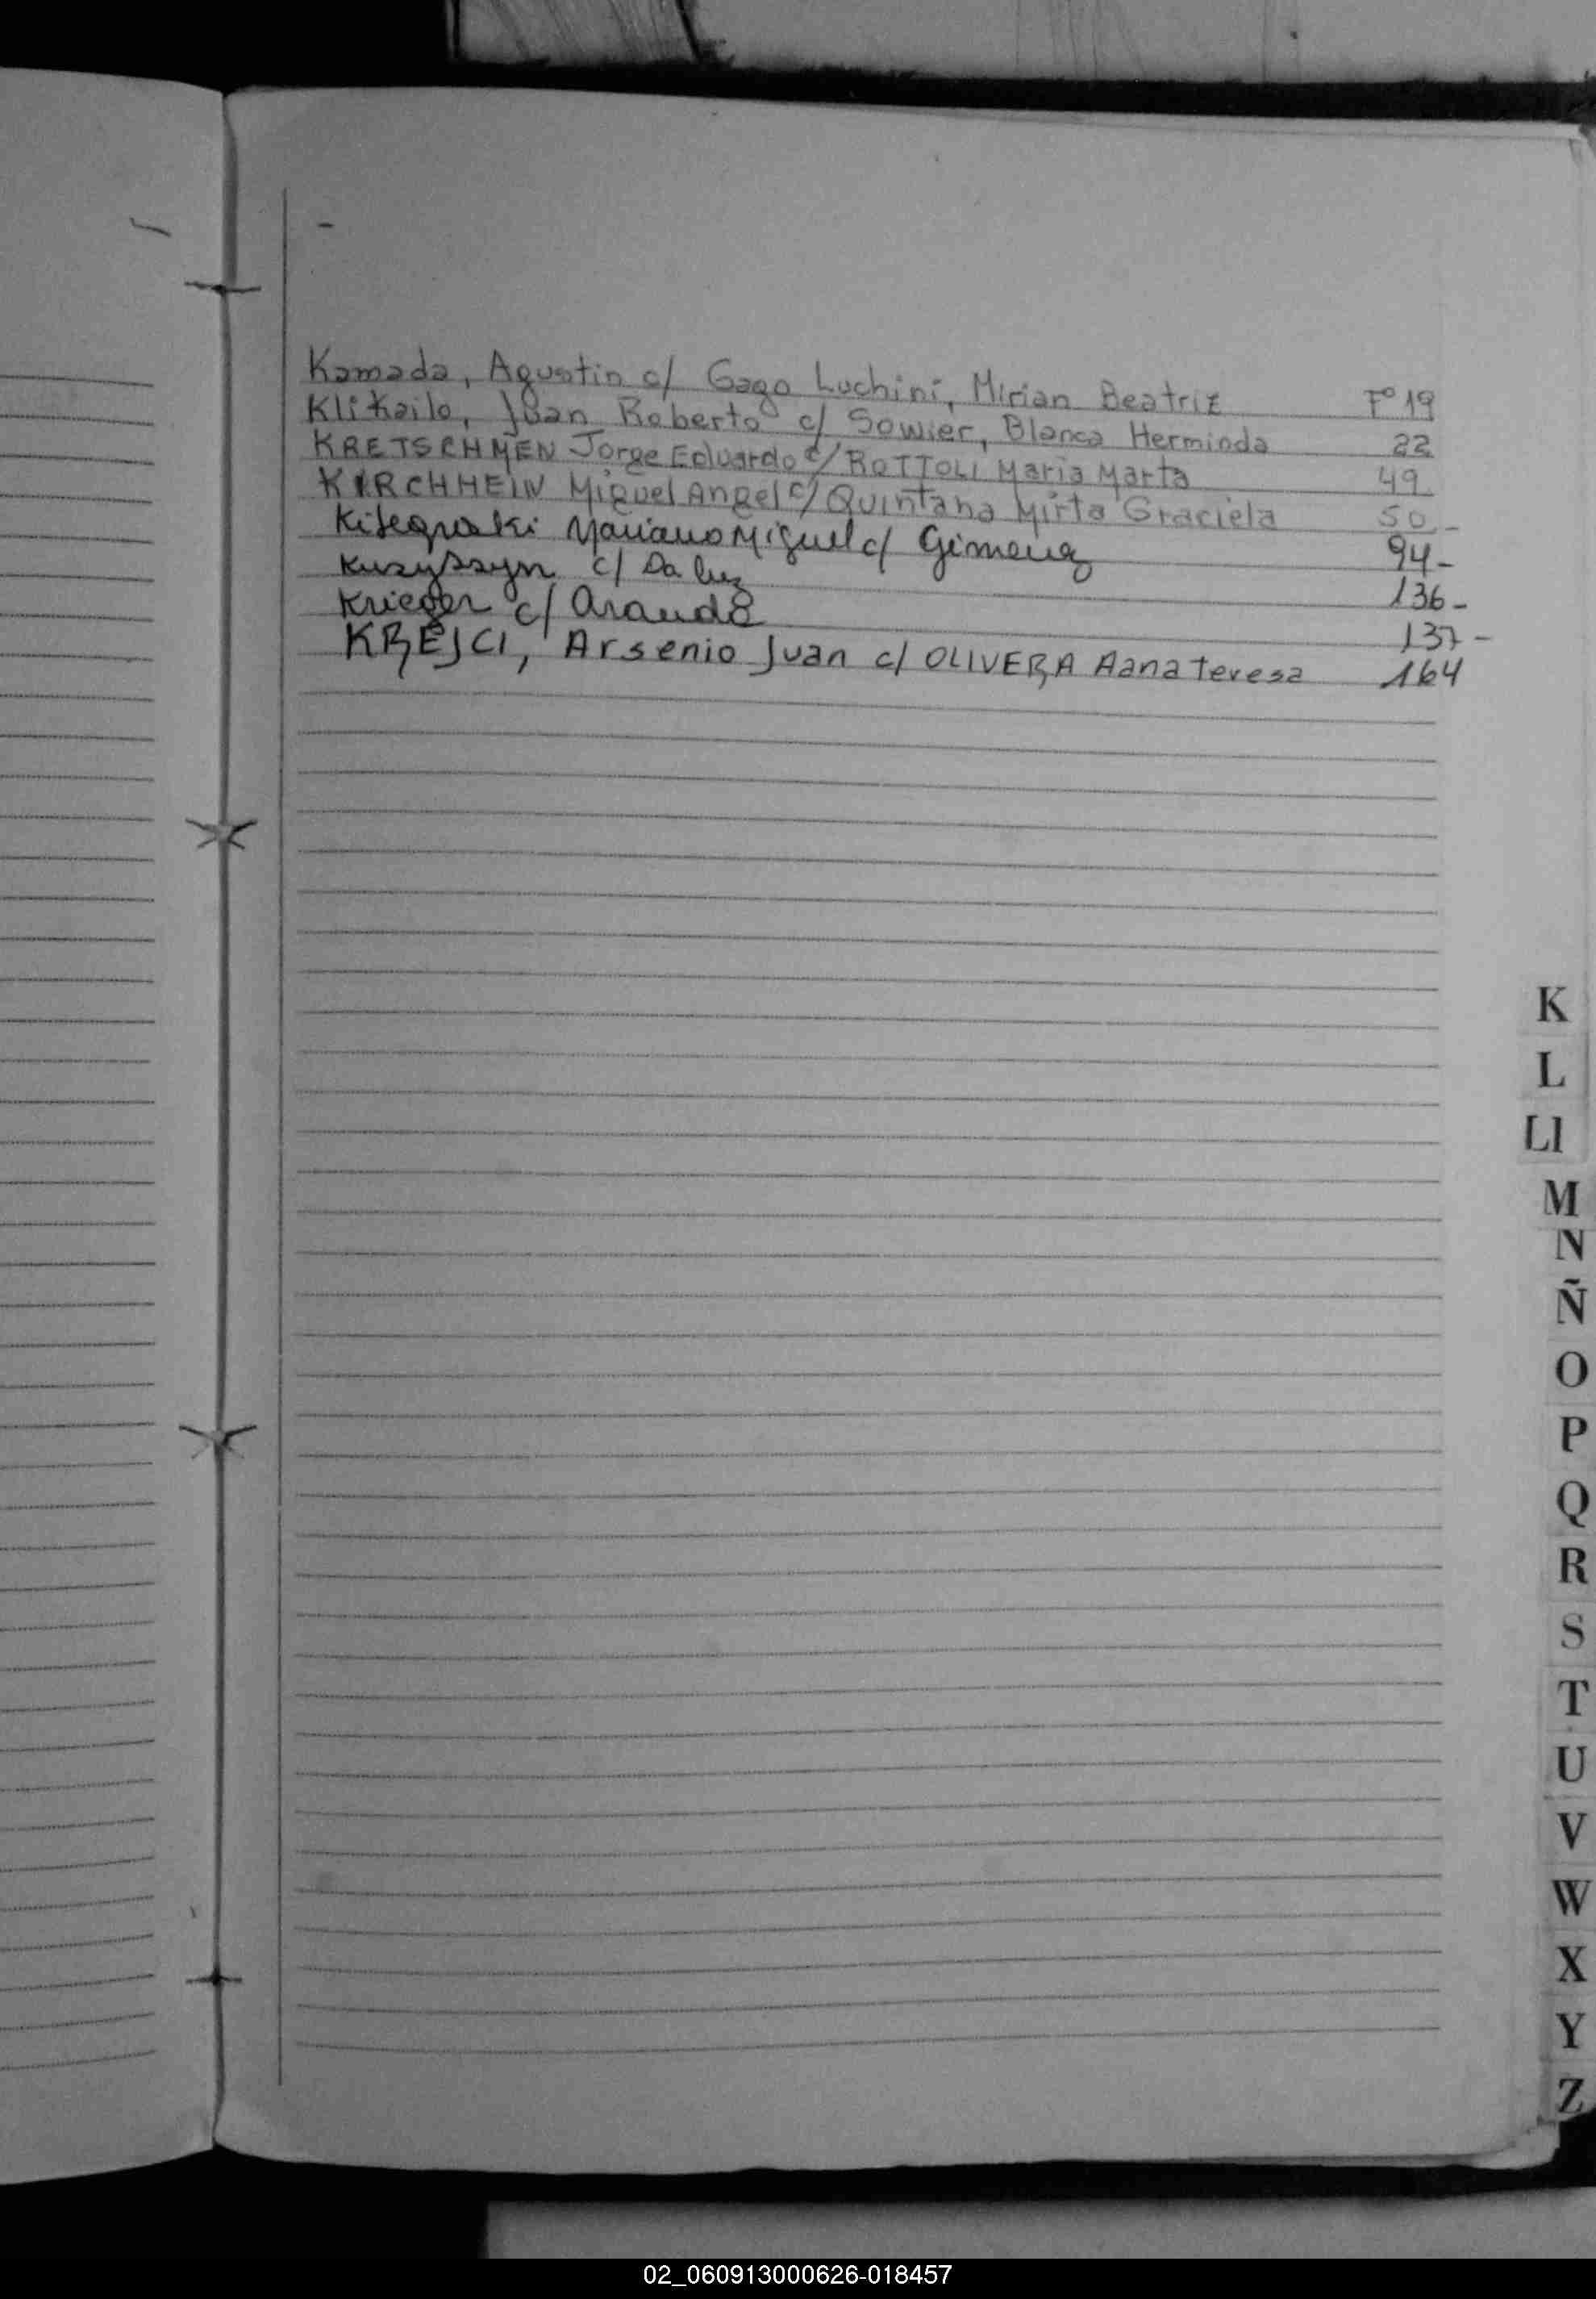 Kamada, Agustin c/ Gago Luchini, Mirian Beatriz F° 19
Klikailo, Juan Roberto c/ Sowier, Blanca Herminda 22
KRETSCHMEN Jorge Eduardo c/ ROTTOLI Maria Marta 49
KIRCHHEIN Miguel Angel c/ Quintana Mirta Graciela 50-
Mariano Miguel c/ Gimenez 94-
c/ Da luz 136-
Krieger c/ 137-
KREJCI, Arsenio Juan c/ OLIVERA Aana Teresa 164
K
L
Ll
M
N
Ñ
O
P
Q
R
S
T
U
V
W
X
Y
Z
02_060913000626-018457